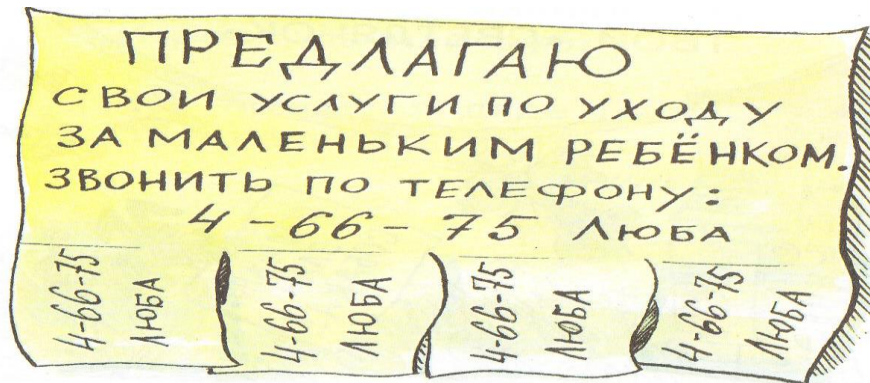 ПРЕДЛАГАЮ
СВОИ УСЛУГИ ПО УХОДУ
ЗА МАЛЕНЬКИМ РЕБЁНКОМ.
ЗВОНИТЬ ПО ТЕЛЕФОНУ:
4-66-75 ЛЮБА
4-66-75
ЛЮБА
4-66-75
ЛЮБА
4-66-75
ЛЮБА
4-66-75
ЛЮБА